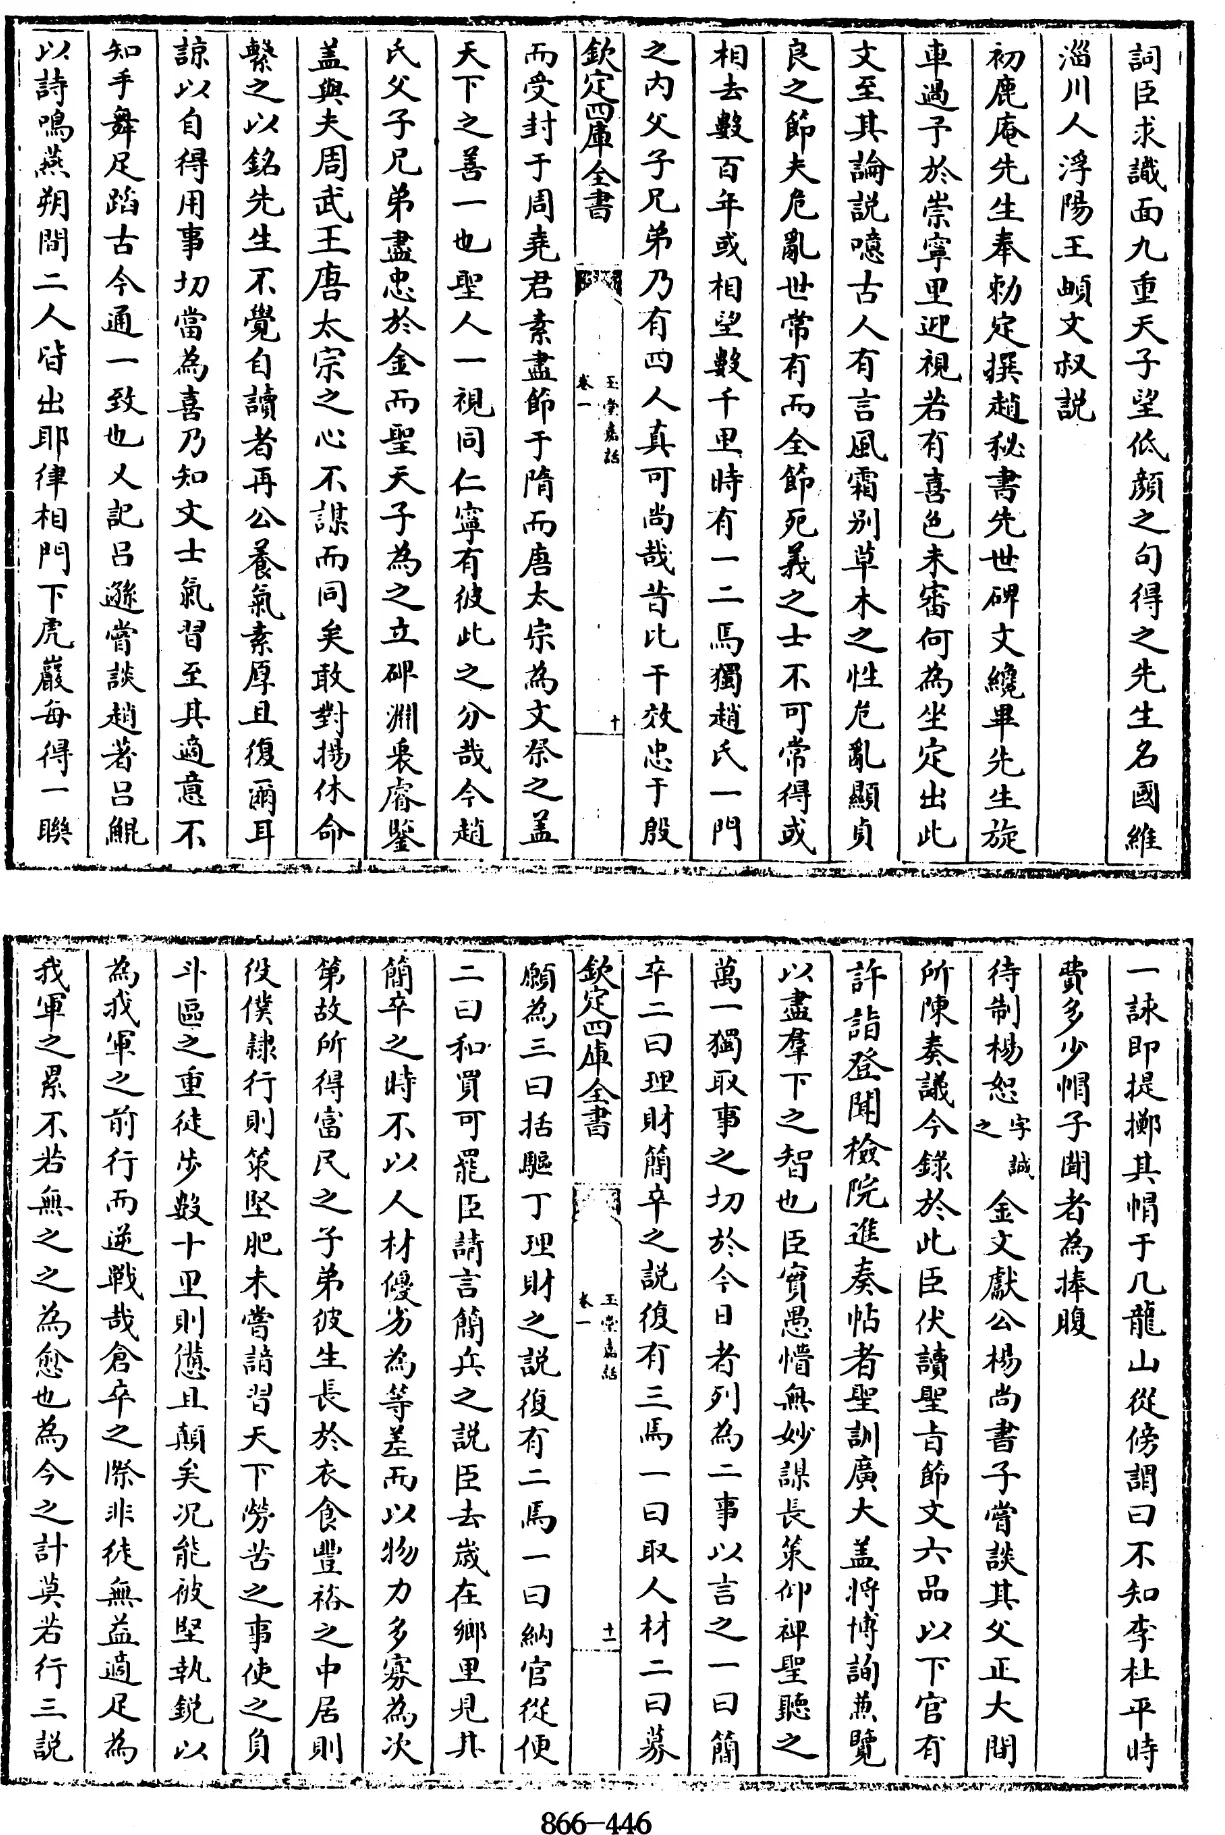 詞臣求識面九重天子望低顔之句得之先生名國維
淄川人浮陽王頔文叔説
初鹿庵先生奉勅定撰趙秘書先世碑文纔畢先生旋
車過予於崇寧里迎視若有喜色未審何為坐定出此
文至其論説噫古人有言風霜别草木之性危亂顯貞
良之節夫危亂世常有而全節死義之士不可常得或
相去數百年或相望數千里時有一二焉獨趙氏一門
之内父子兄弟乃有四人真可尚哉昔比干效忠于殷
欽定四庫全書
玉堂嘉話
卷一
十
而受封于周堯君素盡節于隋而唐太宗為文祭之盖
天下之善一也聖人一視同仁寧有彼此之分哉今趙
氏父子兄弟盡忠於金而聖天子為之立碑淵衷睿鑒
盖與夫周武王唐太宗之心不謀而同矣敢對揚休命
繫之以銘先生不覺自讀者再公養氣素厚且復爾耳
諒以自得用事切當為喜乃知文士氣習至其適意不
知手舞足蹈古今通一致也又記吕遜嘗談趙著吕鯤
以詩鳴燕朔間二人皆出耶律相門下虎巖每得一聯
一詠即提擲其帽于几龍山從傍謂曰不知李杜平時
費多少帽子聞者為捧腹
待制楊恕字誠之金文獻公楊尚書子嘗談其父正大間
所陳奏議今錄於此臣伏讀聖㫖節文六品以下官有
許詣登聞檢院進奏帖者聖訓廣大盖將博詢兼覽
以盡羣下之智也臣實愚懵無妙謀長策仰裨聖聽之
萬一獨取事之切於今日者列為二事以言之一曰簡
卒二曰理財簡卒之説復有三焉一曰取人材二曰募
欽定四庫全書
玉堂嘉話
卷一
十一
願為三曰括驅丁理財之説復有二焉一曰納官從便
二曰和買可罷臣請言簡兵之説臣去歲在鄉里見其
簡卒之時不以人材優劣為等差而以物力多寡為次
第故所得富民之子弟彼生長於衣食豐裕之中居則
役僕隸行則策堅肥未嘗諳習天下勞苦之事使之負
斗區之重徒步數十里則憊且顛矣况能被堅執鋭以
為我軍之前行而逆戰哉倉卒之際非徒無益適足為
我軍之累不若無之之為愈也為今之計莫若行三説
866-446